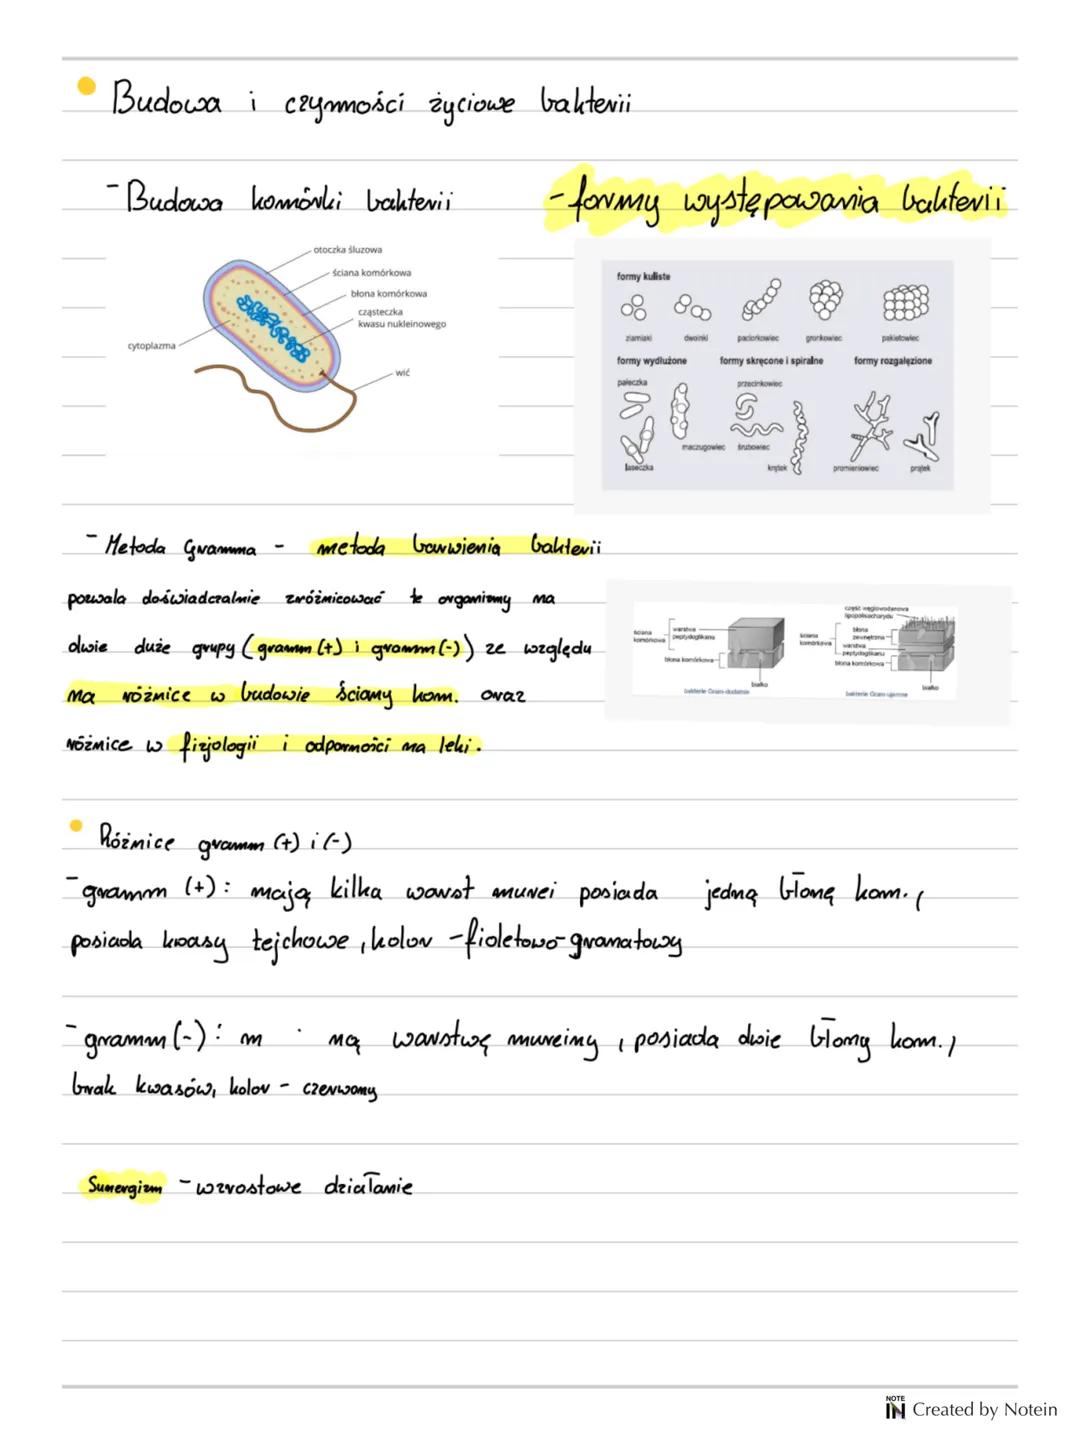 Budowa i czynności życiowe bakterii
- Budowa komórki bakterii
- formy występowania bakterii
otoczka śluzowa
ściana komórkowa
błona komórkowa
cząsteczka
kwasu nukleinowego
cytoplazma
wić
formy kuliste
ziarniaki dwoinki paciorkowiec gronkowiec pakietowiec
formy wydłużone formy skręcone i spiralne formy rozgałęzione
pałeczka przecinkowiec
maczugowiec śrubowiec
laseczka krętek promieniowiec prątek
- Metoda Gramma - metoda barwienia bakterii
pozwala doświadczalnie zróżnicować te organizmy na
dwie duże grupy (gramm (+) i gramm (-)) ze względu
na różnice w budowie ściany kom. oraz
różnice w fizjologii i odporności na leki.
ściana
komórkowa
warstwa
peptydoglikanu
błona komórkowa
białko
bakterie Gram-dodatnie
część węglowodanowa
lipopolisacharydu
ściana
komórkowa
błona
zewnętrzna
warstwa
peptydoglikanu
błona komórkowa
białko
bakterie Gram-ujemne
Różnice gramm (+) i (-)
- gramm (+): mają kilka warst murei posiada jedną błonę kom.,
posiada kwasy tejchowe, kolor - fioletowo-granatowy
- gramm (-): m ną warstwę mureiny, posiada dwie błony kom.,
brak kwasów, kolor - czerwony
Sunergizm - wzrostowe działanie
NOTE
IN Created by Notein